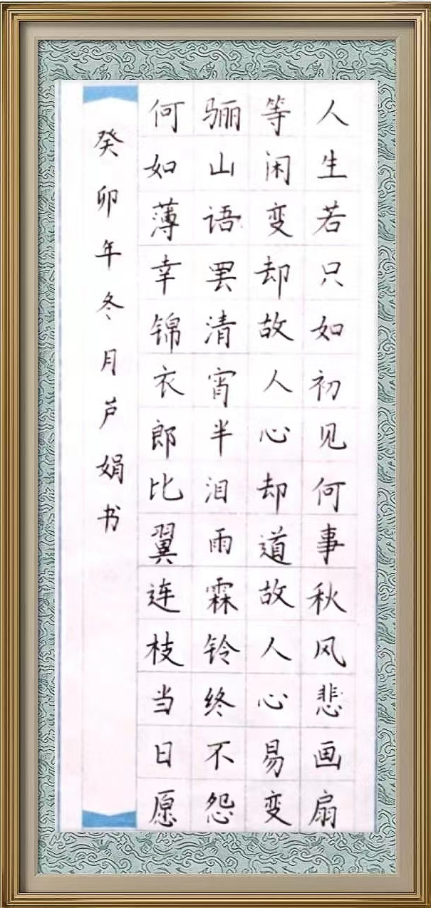 人生若只如初见何事秋风悲画扇
等闲变却故人心却道故人心易变
骊山语罢清宵半泪雨霖铃终不怨
何如薄幸锦衣郎比翼连枝当日愿
癸卯年冬月芦娟书